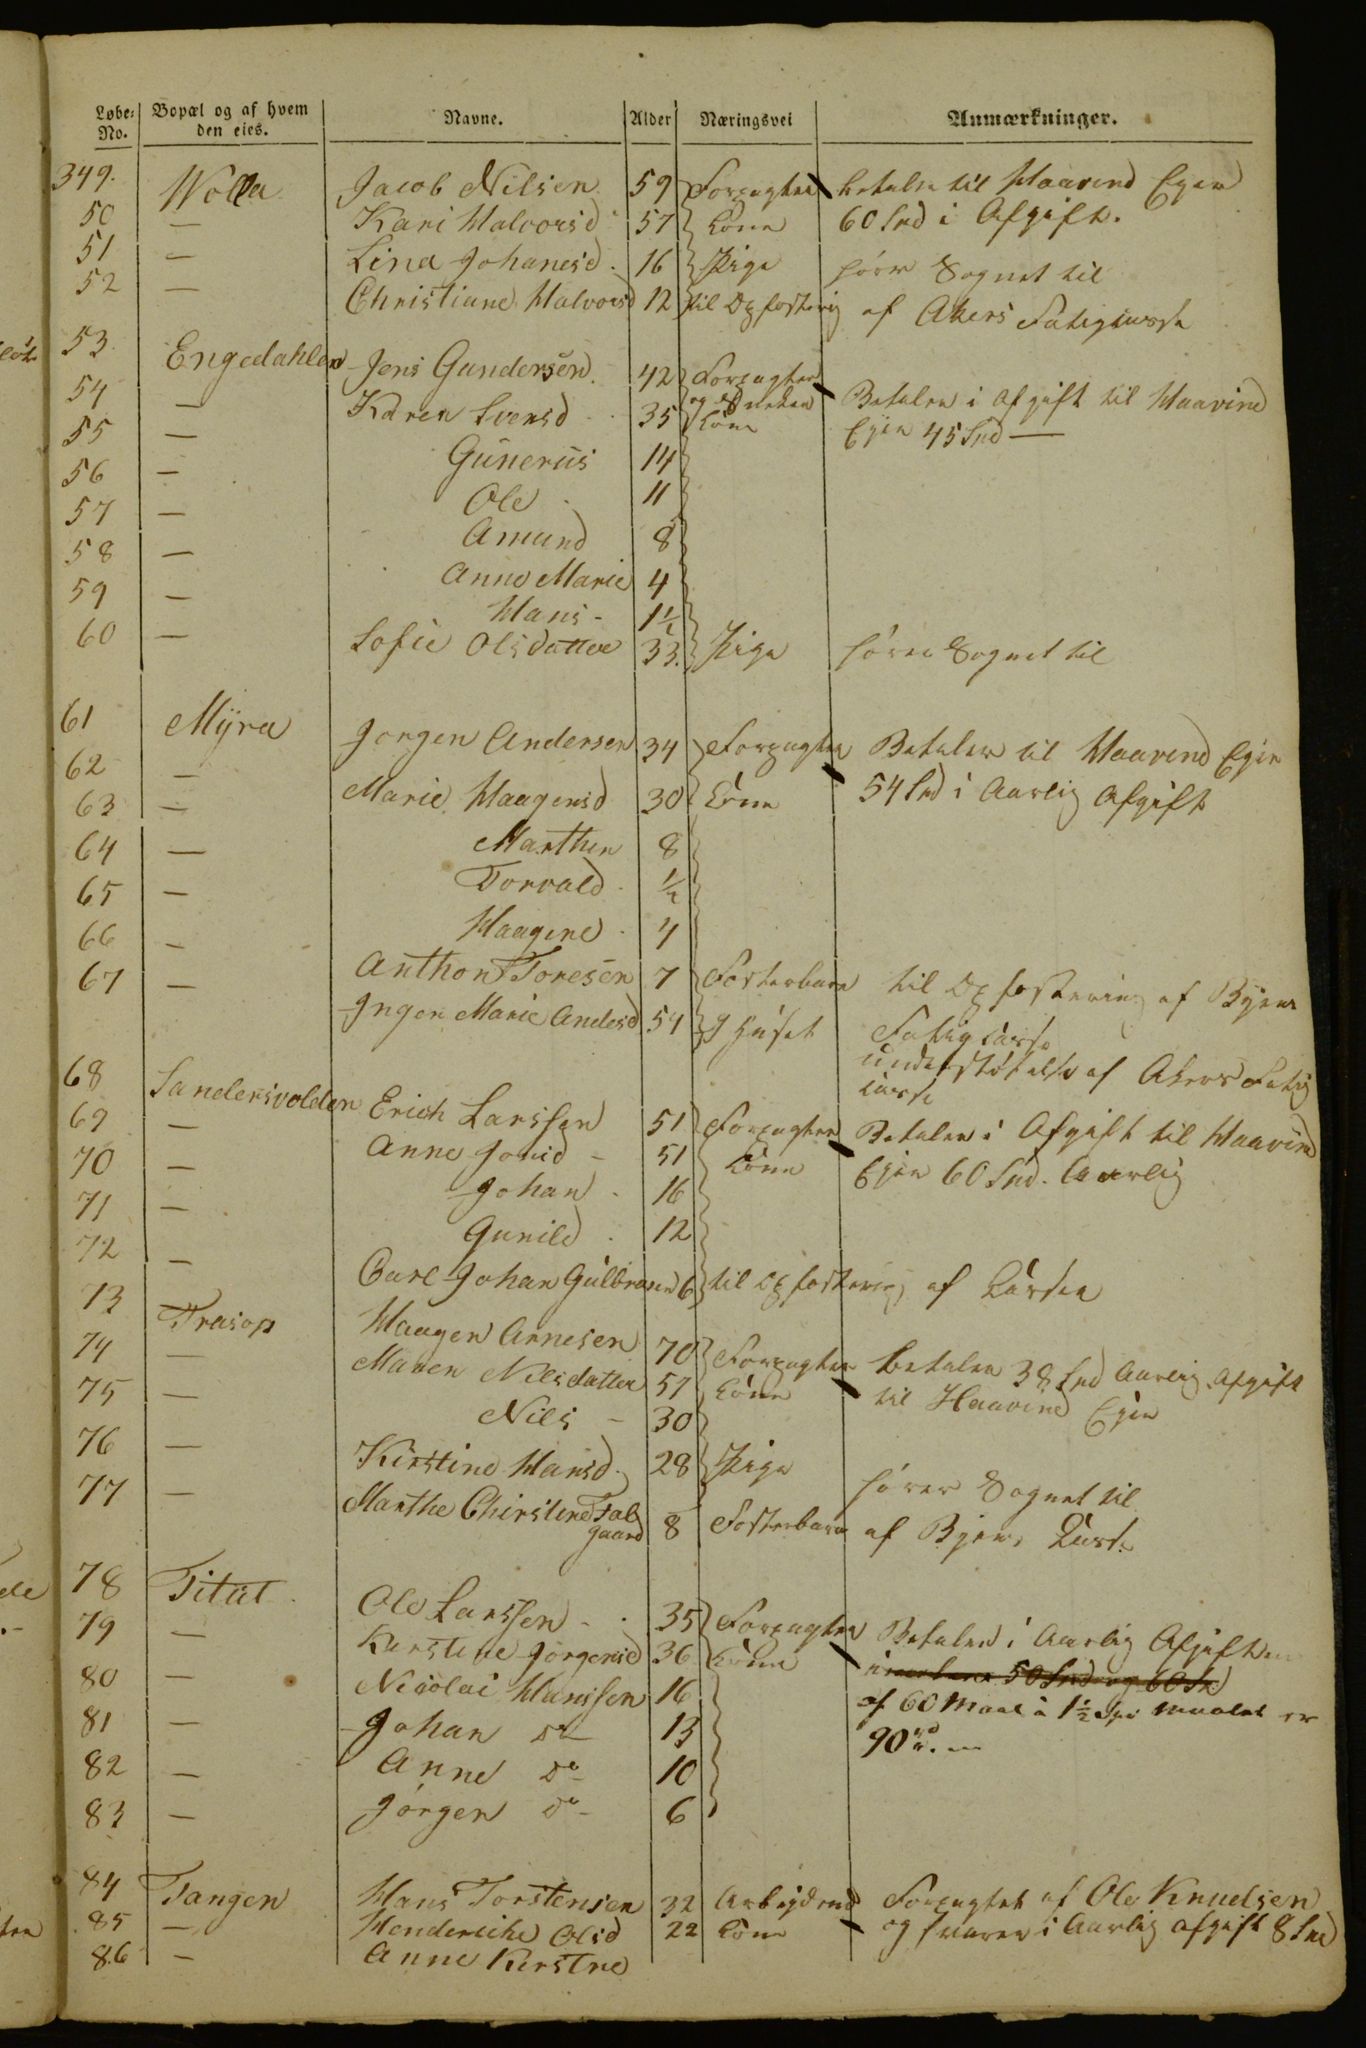 Løbe-No. Bopæl og af hvem den eies. Navne. Alder Næringsvei Anmærkninger.
349. Wolla Jacob Nilsen 59 Forpagter betaler til Haavind Eger
50 — Kari Halvorsd 57 Kone 60 Spd i Afgift.
51 — Lina Johanesd. 16 Pige hörer Sognet til
52 — Christiane Halvorsd 12 til Opfostrig af Akers Fatigkasse
53 Engedahlen Jens Gundersen 42 Forpagter
54 — Karen Svensd 35 Kone Betaler i Afgift til Haavind
55 — Gunerius 14 Ejer 45 Spd —
56 — Ole 11
57 — Amund 8
58 — Anne Marie 4
59 — Hans - 1½
60 — Sofie Olsdatter 33. Pige hörer Sognet til
61 Myra Jorgen Andersen 34 Forpagter Betaler til Haavind Ejer
62 — Marie Haagensd 30 Kone 54 Spd i Aarlig Afgift
63 — Marthin 8
64 — Torvald ½
65 — Haagine 4
66 — Anthon Toresen 7 Fosterbarn til Opfostring af Byens Fatigkasse
67 — Inger Marie Andersd 54 I Huset understøtelse af Akers Fatig kasse
68 Sandersvolden Erich Larssen 51 Forpagter Betaler i Afgift til Haavind
69 — Anne Jonsd - 51 Kone Ejer 60 Spd. Aarlig
70 — Johan 16
71 — Gunild 12
72 — Carl Johan Gulbransen 6 til Opfostring af Kassen
73 Trasop Haagen Arnesen 70 Forpagter betaler 38 Spd Aarlig Afgift
74 — Maren Nilsdatter 57 Kone til Haavind Ejer
75 — Nils - 30
76 — Kirstine Hansd. 28 Pige hörer Sognet til
77 — Marthe Chirstine Falgaard 8 Fosterbarn af Byens Kasse
78 Titut Ole Larssen - 35 Forpagter Betaler i Aarlig Afgift
79 — Kirstine Jörgensd 36 Kone 50 Spd og 60 Sk
80 — Nicolai Hanssen 16 af 60 Maal à 1½ Spd Maalet er
81 — Johan do 13 90
82 — Anne do 10
83 — Jörgen do 6
84 Tangen Hans Torstensen 32 Arbejdsmd Forpagtet af Ole Knudsen
85 — Henderiche Olsd 22 Kone og svarer i Aarlig afgift 8 Spd
86 — Anne Kirstne